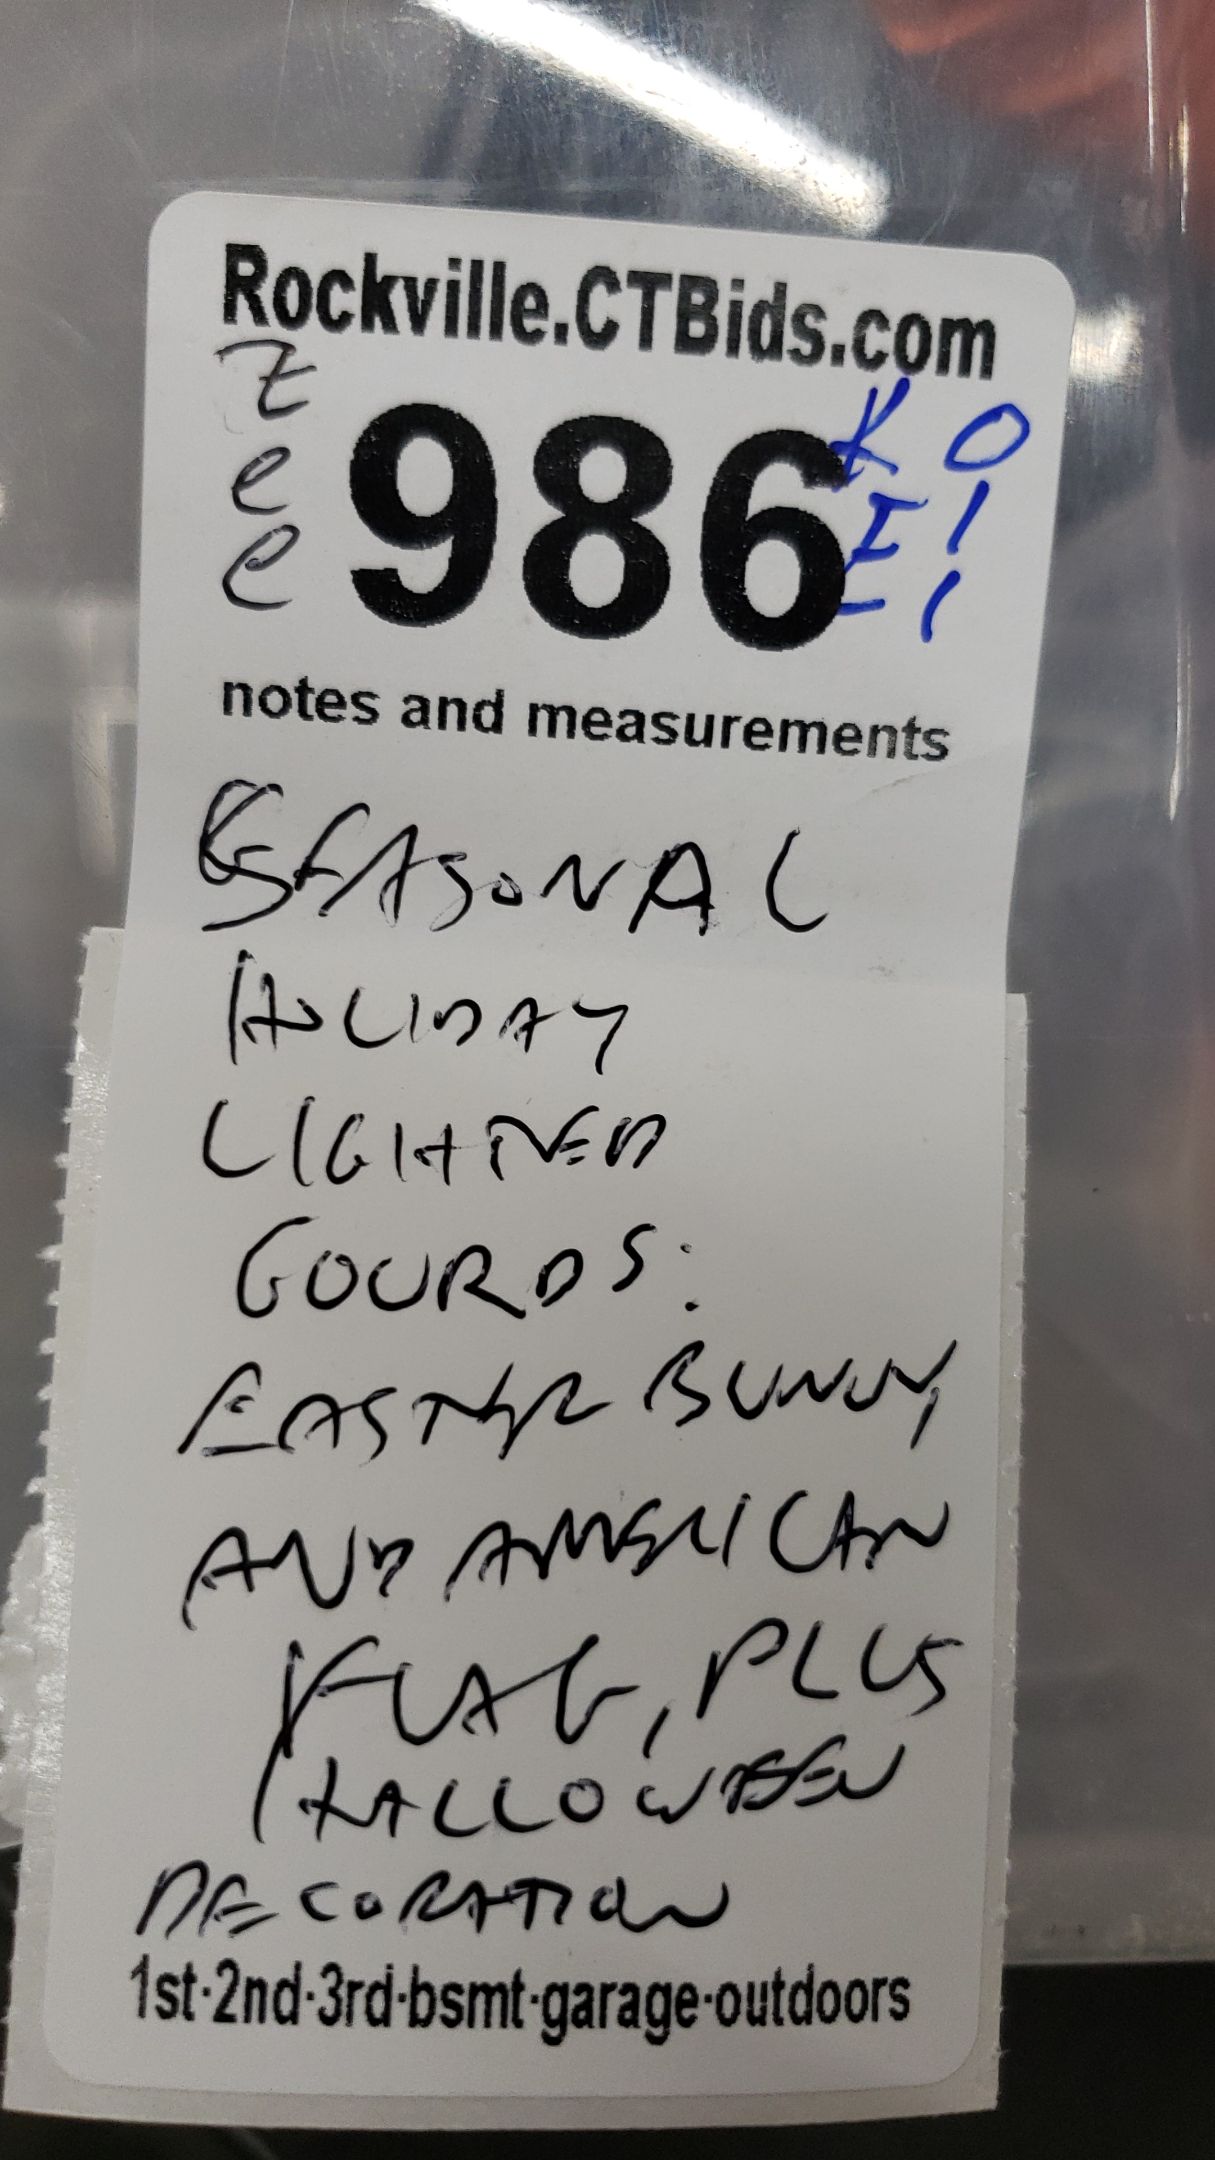 Rockville.CTBids.com
Zee
986
K O
I 1
notes and measurements
SEASONAL
HOLIDAY
LIGHTED
GOURDS:
EASTER BUNNY,
AND AMERICAN
FLAG, PLUS
HALLOWEEN
DECORATION
1st·2nd·3rd·bsmt·garage·outdoors